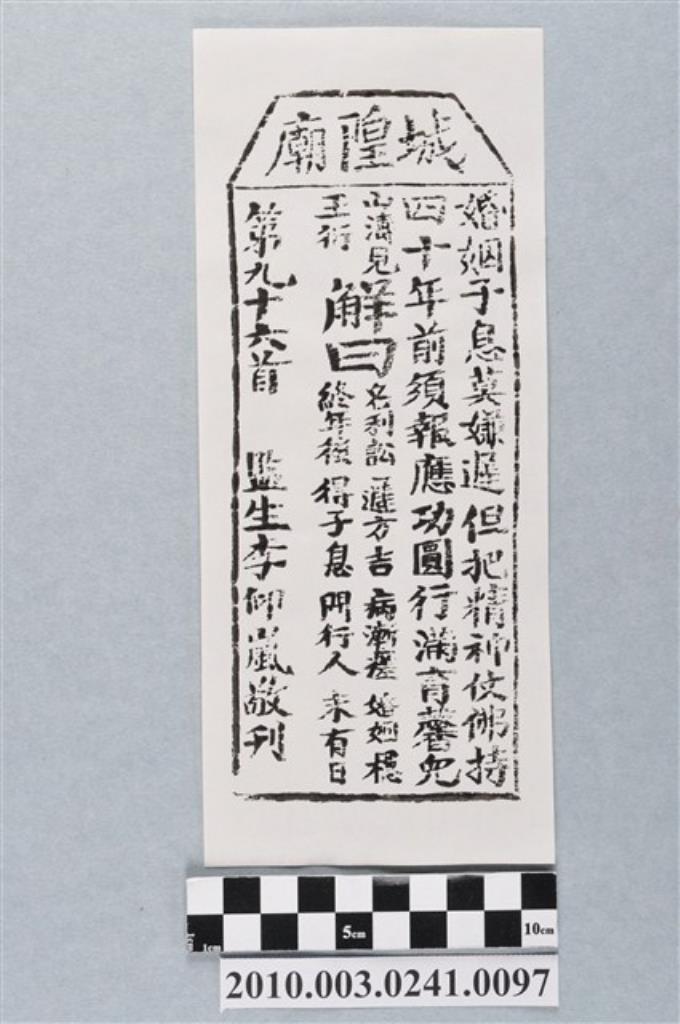 城隍廟
婚姻子息莫嫌遲但把精神仗佛持
四十年前須報應功圓行滿育馨兒
山濤見
王衍
解曰
名利訟 遲方吉 病漸瘥 婚姻穩
終年後 得子息 問行人 未有日
第九十六首 監生李仰嵐敬刊
1cm 5cm 10cm
2010.003.0241.0097